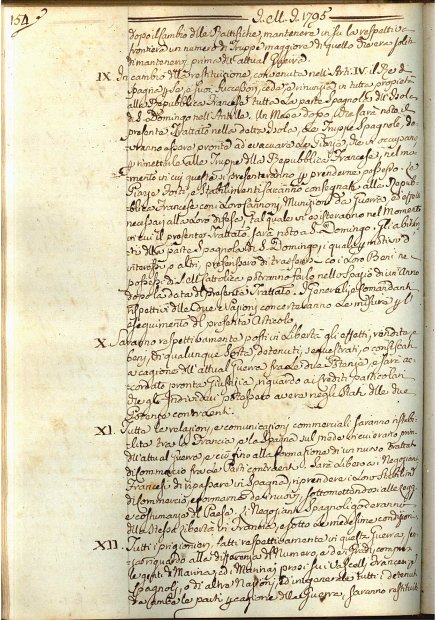 154
J.M.J. 1795
dopo il cambio delle Ratifiche, mantenere in su la respettiva
frontiera un numero di Truppe maggiore di quello che era solita
di mantenervi, prima dell'attual Guerra.
IX. In cambio della restituzione, convenuta nell'Arti: IV. il Re di
Spagna per se, e suoi successori, cede, e rinunzia in tutta proprietà
alla Repubblica Francese tutta la parte Spagnola dell'Isola
di S. Domingo nell'Antille. Un Mese dopo che sarà noto il
presente Trattato nella detta Isola, le Truppe Spagnole, do-
vranno essere pronte ad evacuare le Piazze, che vi occupano
per rimetterle alle Truppe della Repubblica Francese, nel mo-
mento in cui queste si presenteranno per prenderne possesso. Le
Piazze Porti e Stabilimenti saranno consegnate alla Repub-
blica Francese con i loro Cannoni, Munizioni da Guerra, ed effetti
necessari alla loro difesa, tal quale vi esisteranno nel Momento
in cui il presente Trattato sarà noto a S. Domingo. Gli abitan-
ti della parte Spagnola di S. Domingo, i quali per motivo d'
interesse o altri, preferissero di trasferirsi co' i loro Beni ne'
possessi di S.M. Cattolica potranno farlo nello spazio di un'Anno
dopo la data del presente Trattato. I Generali, e Comandanti
rispettivi delle due Nazioni concerteranno le misure per l'
eseguimento del presente Articolo.
X. Saranno respettivamente posti in Libertà gli effetti, rendite, e
beni, di qualunque sorta detenuti, sequestrati, o confiscati
a cagione dell'attual Guerra fra le due Potenze e sarà ac-
cordata pronta Giustizia riguardo ai crediti particolari
che gli Individui potessero avere negli Stati delle due
Potenze contraenti.
XI. Tutte le relazioni, e comunicazioni commerciali saranno ristabi-
lite tra la Francia e la Spagna sul piede in cui erano prima
dell'attual Guerra e ciò fino alla formazione di un nuovo Trattato
di Commercio fra le Parti contraenti. Sarà libero a' Negozianti
Francesi di ripassare in Spagna, riprendere i loro Stabilimenti
di Commercio, e formarne de' nuovi, sottomettendosi alle Leggi
e costumanze del Paese. I Negozianti Spagnoli goderanno
della stessa libertà in Francia, e sotto le medesime condizioni.
XII. Tutti i prigionieri, fatti respettivamente in questa Guerra, sen-
za riguardo alla differenza del Numero, e de' Gradi, compresi
le genti di Marina, ed i Marinai presi su i Vascelli Francesi,
Spagnoli, o di altre Nazioni, ed in generale tutti i detenuti
da ambe le parti per cagione della Guerra, saranno restituiti